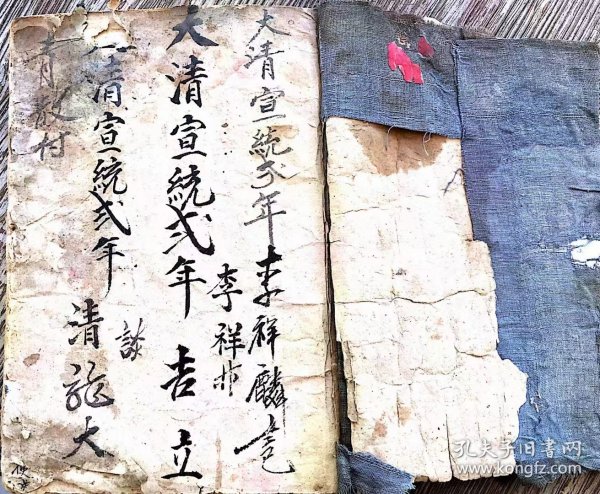 大清宣統弍年 李祥麟
李祥
大清宣統弍年 吉立
談
大清宣統弍年 清龍大
青敬村
孔夫子旧书网
www.kongfz.com